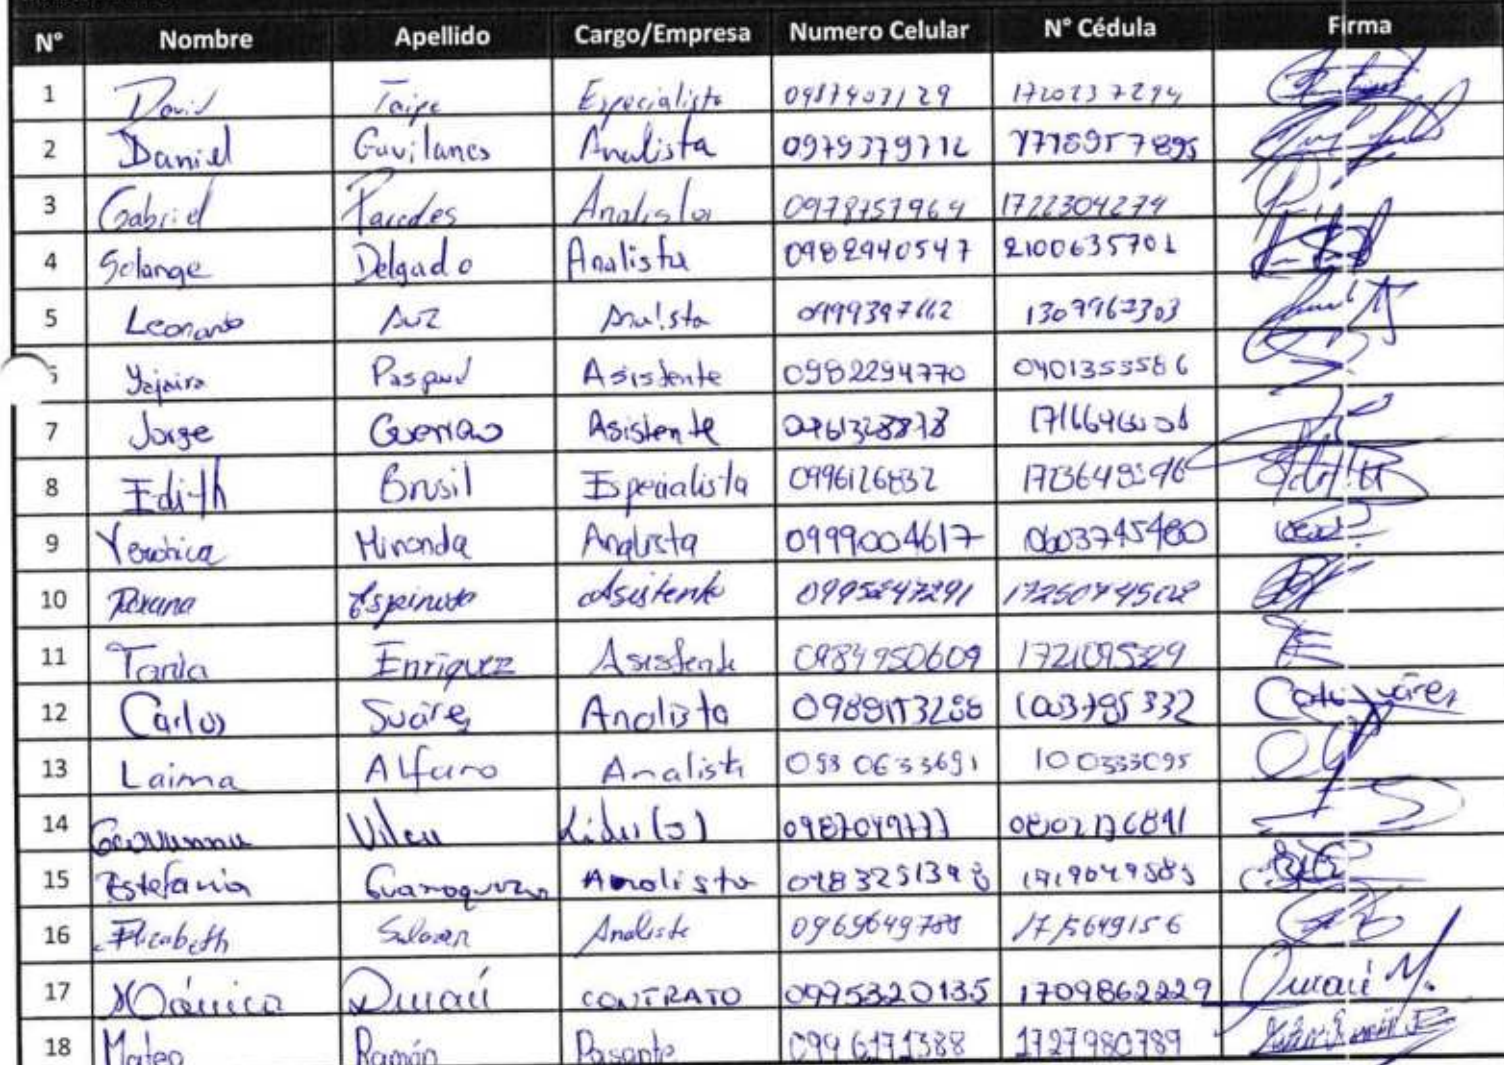 N° Nombre Apellido Cargo/Empresa Numero Celular N° Cédula Firma
1 David Taipe Especialista 1720237294
2 Daniel Gavilanes Analista 0979379712
3 Gabriel Paredes Analista 0978757964 1722304274
4 Solange Delgado Analista 0982940547 2100635701
5 Leonardo Analista 1307967303
Yajaira Paspuel Asistente 0982294770 0401353586
7 Jorge Guerrao Asistente
8 Edith Brusil Especialista 0996126832
9 Veronica Miranda Analista 0999004617 0603745480
10 Roxana Espinosa Asistente 0995247291
11 Tania Enriquez Asistente 0984950609
12 Carlos Suárez Analista 1003795332
13 Laima Alfaro Analista 0980633691 100333095
14 Geovanna Vilca Lider(a) 0987049777
15 Estefania Guanoquiza Analista 0983251398
16 Elizabeth Salazar Analista 0969649788 175649156
17 Mónica CONTRATO 0995320135 1709862229
18 Mateo Ramón Pasante 0996171388 1727980789